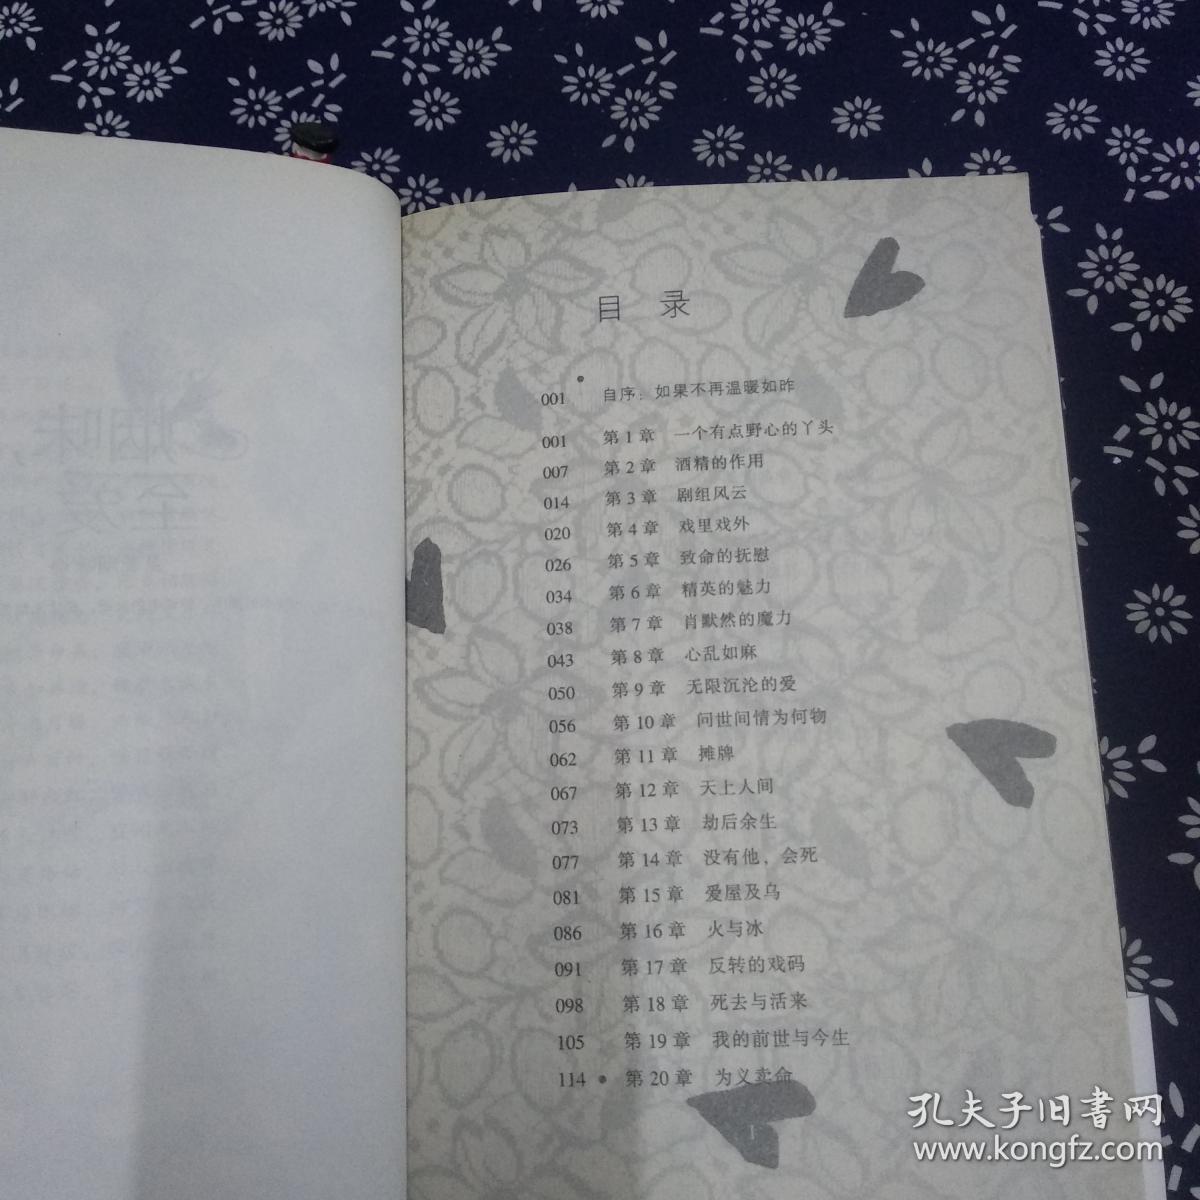 目 录
001 自序：如果不再温暖如昨
001 第1章 一个有点野心的丫头
007 第2章 酒精的作用
014 第3章 剧组风云
020 第4章 戏里戏外
026 第5章 致命的抚慰
034 第6章 精英的魅力
038 第7章 肖默然的魔力
043 第8章 心乱如麻
050 第9章 无限沉沦的爱
056 第10章 问世间情为何物
062 第11章 摊牌
067 第12章 天上人间
073 第13章 劫后余生
077 第14章 没有他，会死
081 第15章 爱屋及乌
086 第16章 火与冰
091 第17章 反转的戏码
098 第18章 死去与活来
105 第19章 我的前世与今生
114 第20章 为义卖命
1
孔夫子旧书网
www.kongfz.com